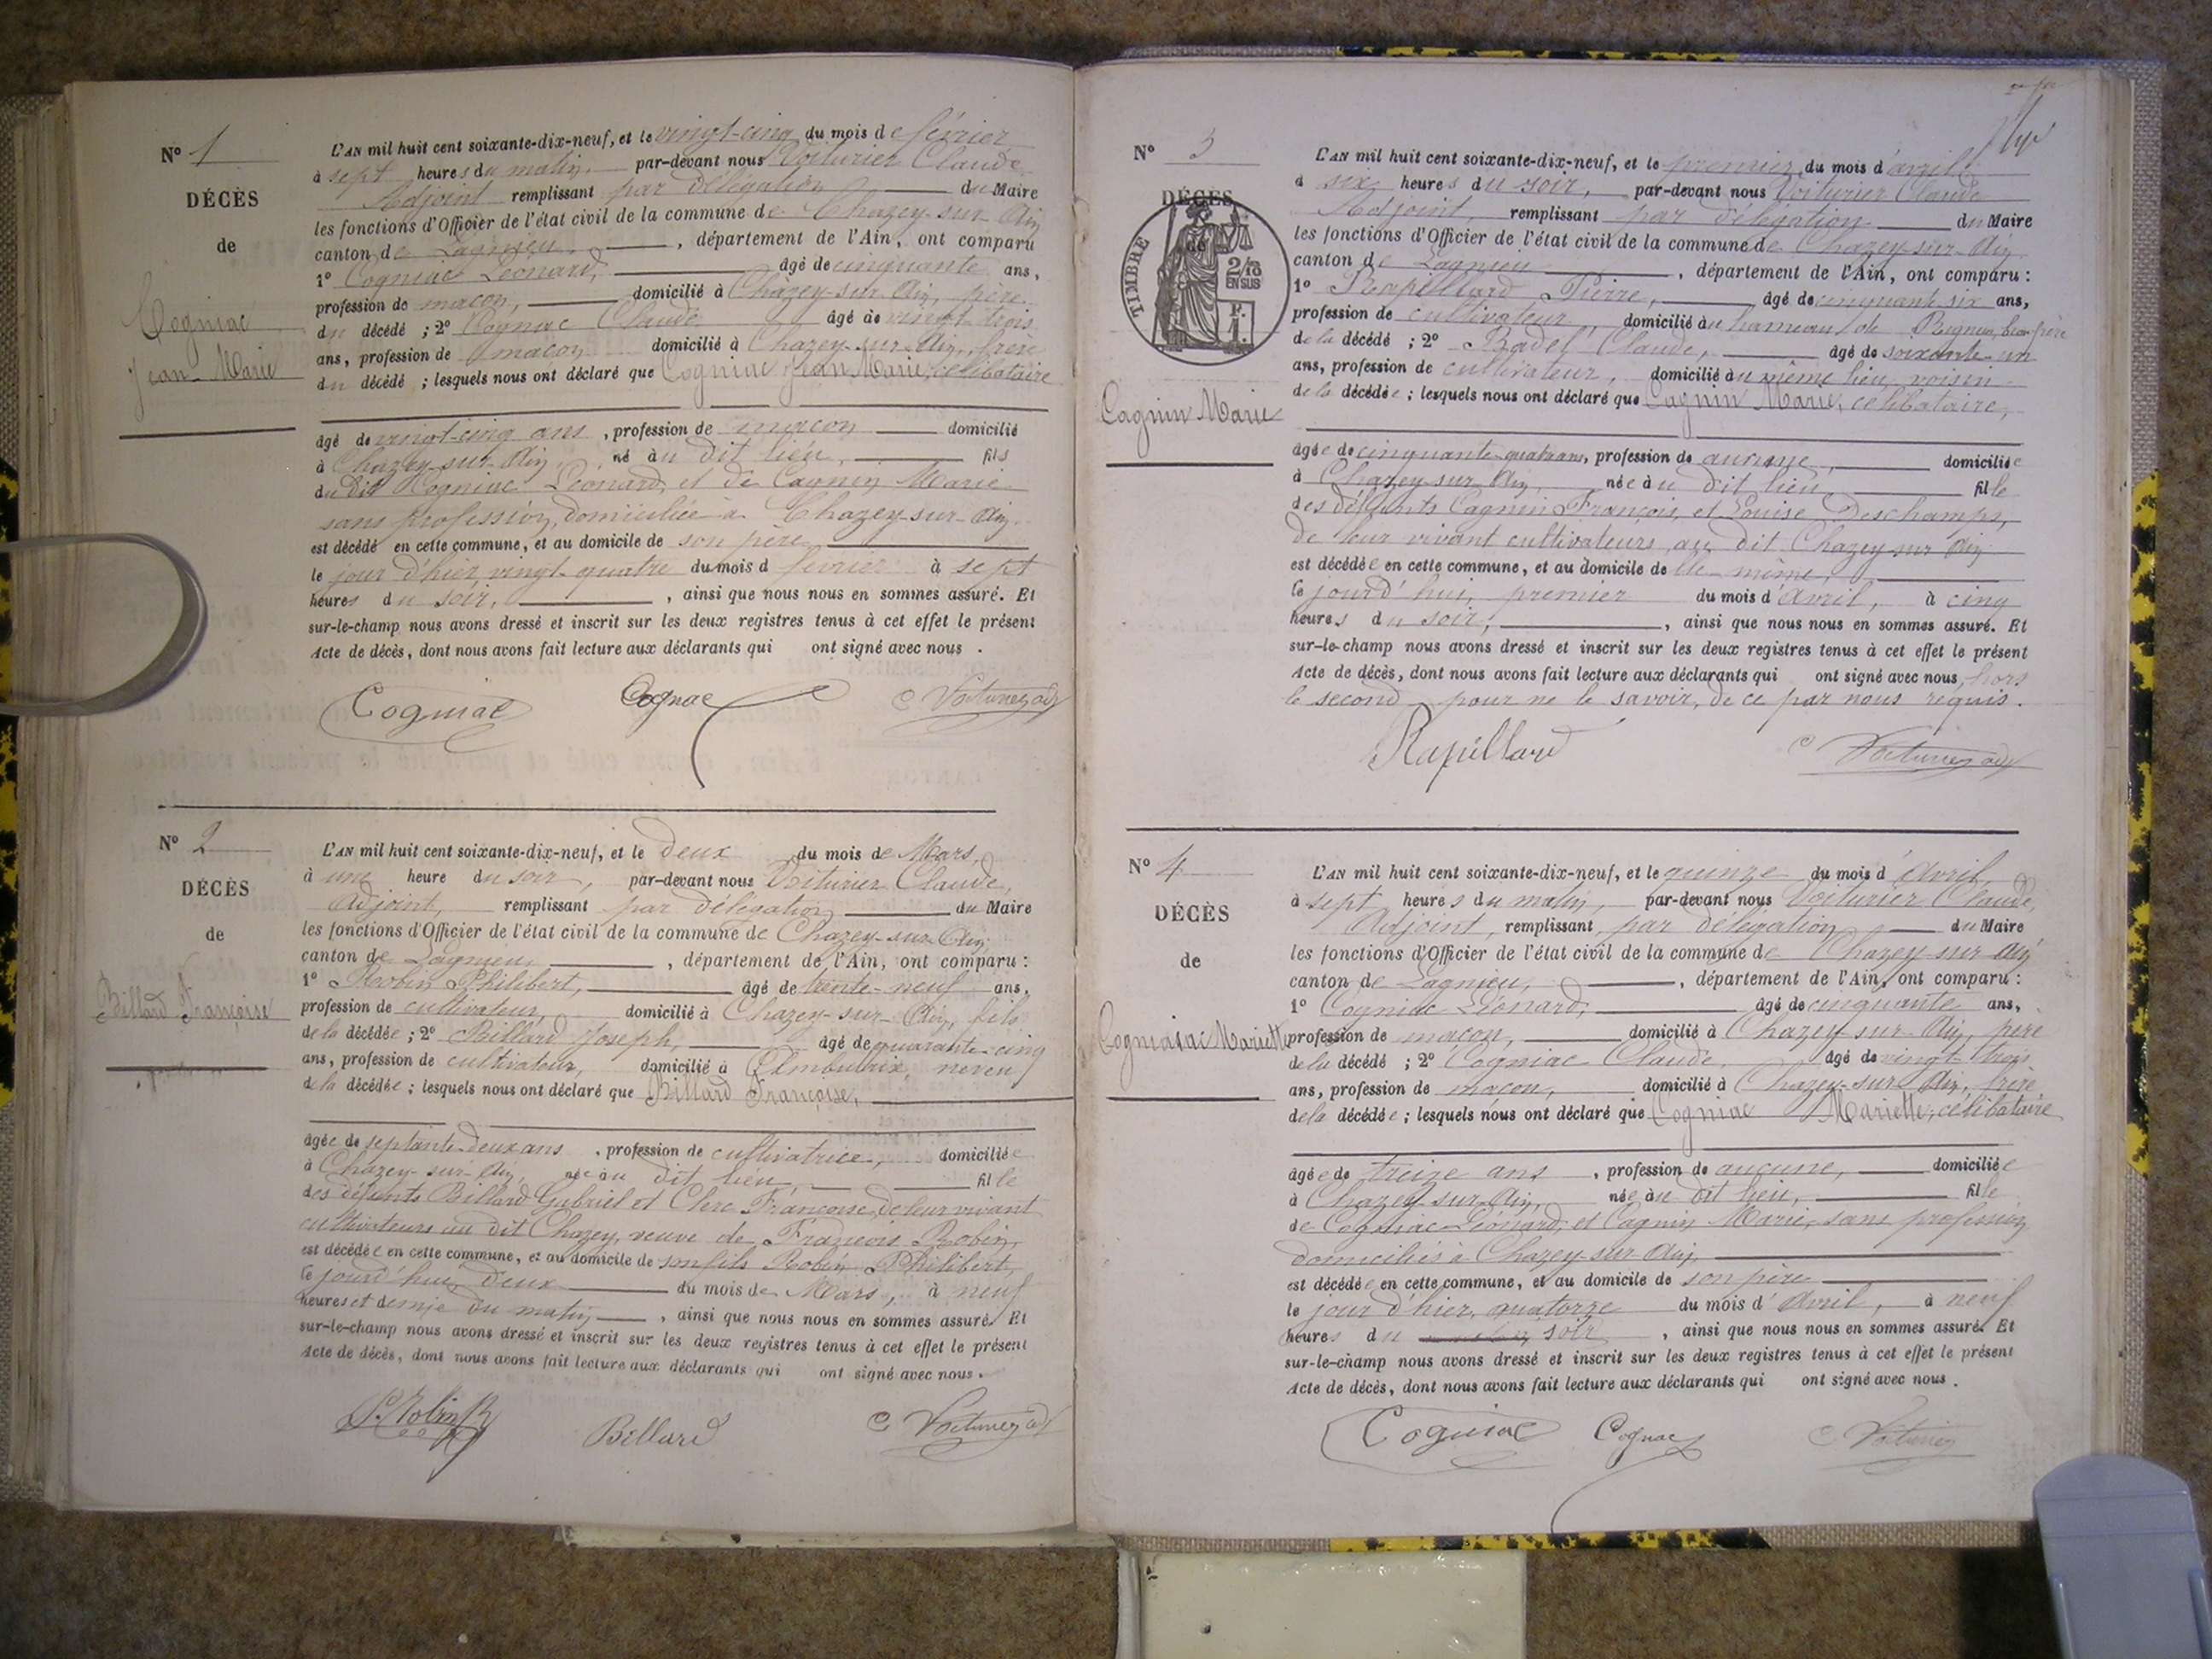 N° 1
DÉCÈS
de
Cogniac
Jean Marie
L'AN mil huit cent soixante-dix-neuf, et le vingt-cinq du mois de février
à sept heures du matin, par-devant nous Voiturier Claude
Adjoint remplissant par délégation du Maire
les fonctions d'Officier de l'état civil de la commune de Chazey-sur-Ain
canton de Lagnieu, département de l'Ain, ont comparu
1° Cogniac Léonard, âgé de cinquante ans,
profession de maçon, domicilié à Chazey-sur-Ain, père
du décédé ; 2° Cogniac Claude âgé de vingt-trois
ans, profession de maçon domicilié à Chazey-sur-Ain, frère
du décédé ; lesquels nous ont déclaré que Cogniac Jean Marie, célibataire
âgé de vingt-cinq ans, profession de maçon domicilié
à Chazey-sur-Ain, né au dit lieu, fils
du dit Cogniac Léonard, et de Cagnin Marie
sans profession, domiciliée à Chazey-sur-Ain
est décédé en cette commune, et au domicile de son père
le jour d'hier vingt-quatre du mois d février à sept
heures du soir, ainsi que nous nous en sommes assuré. Et
sur-le-champ nous avons dressé et inscrit sur les deux registres tenus à cet effet le présent
Acte de décès, dont nous avons fait lecture aux déclarants qui ont signé avec nous.
Cogniac Cognac C Voiturier adj
N° 2
DÉCÈS
de
Billard Françoise
L'AN mil huit cent soixante-dix-neuf, et le deux du mois de Mars,
à une heure du soir, par-devant nous Voiturier Claude,
Adjoint, remplissant par délégation du Maire
les fonctions d'Officier de l'état civil de la commune de Chazey-sur-Ain
canton de Lagnieu, département de l'Ain, ont comparu :
1° Robin Philibert, âgé de trente-neuf ans,
profession de cultivateur, domicilié à Chazey-sur-Ain, fils
de la décédée ; 2° Billard Joseph, âgé de quarante-cinq
ans, profession de cultivateur, domicilié à Ambutrix, neveu
de la décédée ; lesquels nous ont déclaré que Billard Françoise,
âgée de septante-deux ans, profession de cultivatrice, domiciliée
à Chazey-sur-Ain, née au dit lieu, fille
des défunts Billard Gabriel et Clerc Françoise, de leur vivant
cultivateurs au dit Chazey, veuve de François Robin,
est décédée en cette commune, et au domicile de son fils Robin Philibert,
le jourd'hui deux du mois de Mars, à neuf
heures et demie du matin, ainsi que nous nous en sommes assuré. Et
sur-le-champ nous avons dressé et inscrit sur les deux registres tenus à cet effet le présent
Acte de décès, dont nous avons fait lecture aux déclarants qui ont signé avec nous.
P. Robin Billard C Voiturier adj
N° 3
DÉCÈS
de
TIMBRE
2/10
EN SUS
F.
1.
Cagnin Marie
L'AN mil huit cent soixante-dix-neuf, et le premier du mois d'avril
à six heures du soir, par-devant nous Voiturier Claude
Adjoint, remplissant par délégation du Maire
les fonctions d'Officier de l'état civil de la commune de Chazey-sur-Ain
canton de Lagnieu, département de l'Ain, ont comparu :
1° Rapillard Pierre, âgé de cinquante six ans,
profession de cultivateur domicilié au hameau de Rignieu, beau-frère
de la décédé ; 2° Badel Claude, âgé de soixante-un
ans, profession de cultivateur, domicilié au même lieu, voisin
de la décédée ; lesquels nous ont déclaré que Cagnin Marie, célibataire,
âgée de cinquante-quatre ans, profession de aucune, domiciliée
à Chazey-sur-Ain, née au dit lieu fille
des défunts Cagnin François, et Louise Deschamps,
de leur vivant cultivateurs au dit Chazey-sur-Ain
est décédée en cette commune, et au domicile de elle même,
le jourd'hui, premier du mois d'Avril, à cinq
heures du soir, ainsi que nous nous en sommes assuré. Et
sur-le-champ nous avons dressé et inscrit sur les deux registres tenus à cet effet le présent
Acte de décès, dont nous avons fait lecture aux déclarants qui ont signé avec nous, hors
le second pour ne le savoir, de ce par nous requis.
Rapillard C Voiturier adj
N° 4
DÉCÈS
de
Cogniaiac Mariette
L'AN mil huit cent soixante-dix-neuf, et le quinze du mois d'Avril,
à sept heures du matin, par-devant nous Voiturier Claude,
Adjoint, remplissant par délégation du Maire
les fonctions d'Officier de l'état civil de la commune de Chazey-sur-Ain
canton de Lagnieu, département de l'Ain, ont comparu :
1° Cogniac Léonard, âgé de cinquante ans,
profession de maçon, domicilié à Chazey-sur-Ain, père
de la décédé ; 2° Cogniac Claude, âgé de vingt-trois
ans, profession de maçon, domicilié à Chazey-sur-Ain, frère
de la décédée ; lesquels nous ont déclaré que Cogniac Mariette, célibataire
âgée de treize ans, profession de aucune, domiciliée
à Chazey-sur-Ain, née au dit lieu, fille
de Cogniac Léonard, et Cagnin Marie, sans profession
domiciliés à Chazey-sur-Ain,
est décédée en cette commune, et au domicile de son père
le jour d'hier, quatorze du mois d'Avril, à neuf
heures du soir, ainsi que nous nous en sommes assuré. Et
sur-le-champ nous avons dressé et inscrit sur les deux registres tenus à cet effet le présent
Acte de décès, dont nous avons fait lecture aux déclarants qui ont signé avec nous.
Cogniac Cognac C Voiturier